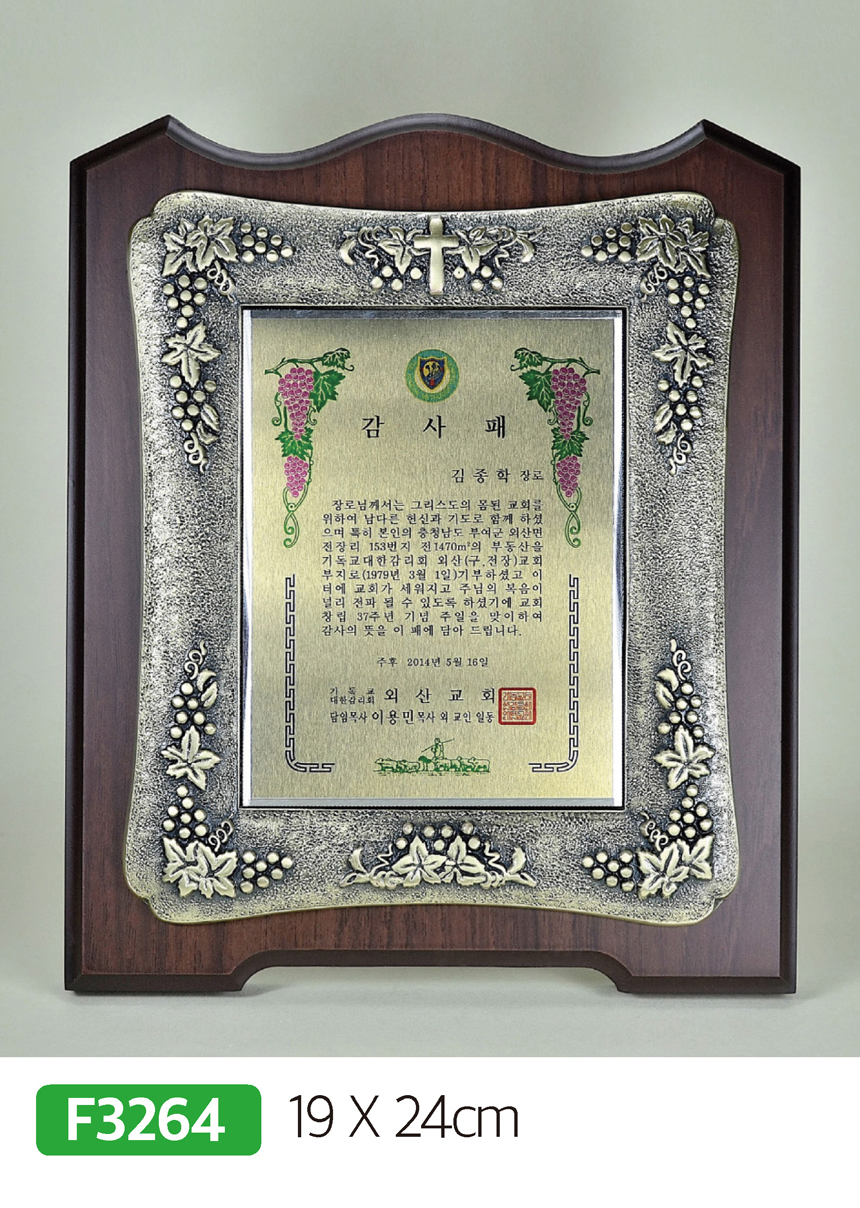 감 사 패
김종학 장로
장로님께서는 그리스도의 몸된 교회를
위하여 남다른 헌신과 기도로 함께 하셨
으며 특히 본인의 충청남도 부여군 외산면
전장리 153번지 전1470m²의 부동산을
기독교대한감리회 외산(구.전장)교회
부지로(1979년 3월 1일)기부하셨고 이
터에 교회가 세워지고 주님의 복음이
널리 전파 될 수 있도록 하셨기에 교회
창립 37주년 기념 주일을 맞이하여
감사의 뜻을 이 패에 담아 드립니다.
주후 2014년 5월 16일
기독교
대한감리회 외산교회
담임목사 이용민목사 외 교인 일동
F3264 19 X 24cm